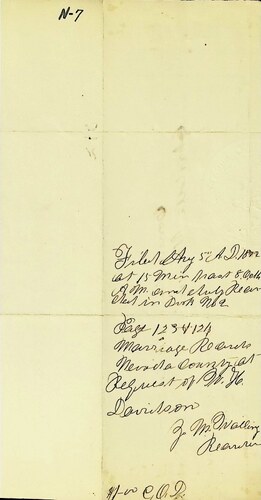 N-7
Filed Aug 5 A.D. 18
at 15 Min past 8 Oclk
A.M. and duly Recor
ded in Book No 2
Page 123 & 124
Marriage Records
Nevada County at
Request of
Davidson
Recorder
C.O.D.